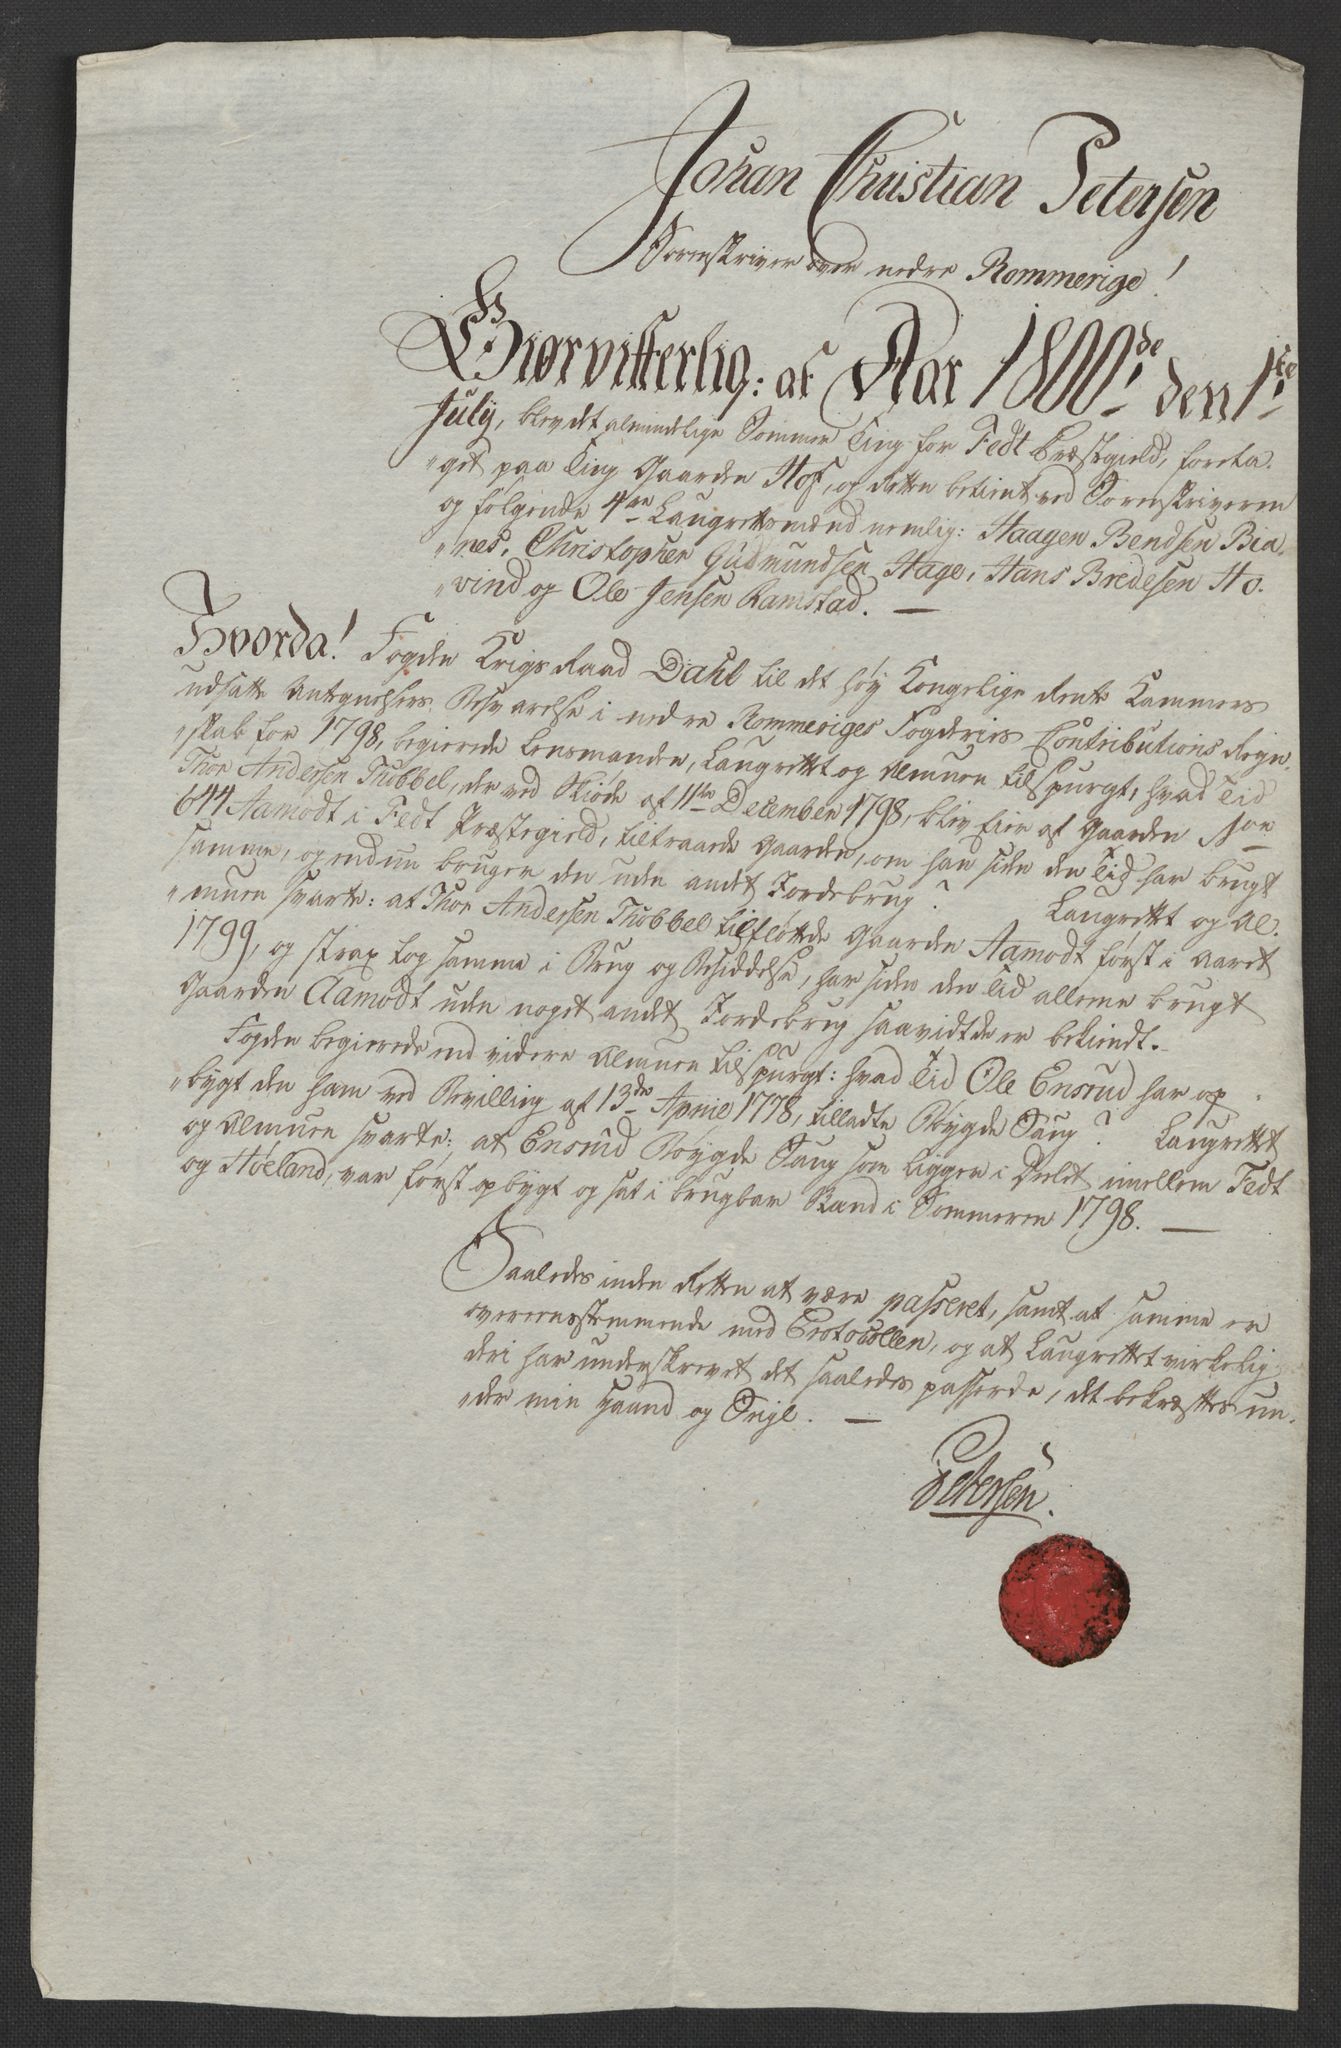 Johan Christian Petersen
Sorenskriver over nedre Rommerige!
Giør vitterlig: at Aar 1800de den 1ste
July, blev det almindelige Sommer Ting for Fedt Præstegield, foreta-
"get paa Ting Gaarden Hof, og Retten betient ved Sorenskriveren
og følgende 4re Laugrettesmænd nemlig: Haagen Bendsen Bia-
"nes, Christopher Gudmundsen Hage, Hans Bredesen Ho-
"vind og Ole Jensen Ramstad. —
Hvorda! Fogden Krigs Raad Dahl til det høy Kongelige Rente Kammers
udsatte Antegnelsers Besvarelse i nedre Rommeriges Fogderies Contributions Regn-
"skab for 1798, begierede Lensmanden, Laugrettet og Almuen tilspurgt, hvad Tid
Thor Andersen Tubbel, der ved Skiøde af 11te December 1798, blev Eier af Gaarden No
644 Aamodt i Fedt Præstegield, tiltraadte Gaarden, om han siden den Tid har brugt
samme, og endnu bruger den uden andet Jordebrug? Laugrettet og Al-
"muen svarte: at Thor Andersen Tubbel tilfløttede Gaarden Aamodt først i Aaret
1799, og strax tog samme i Brug og Besiddelse, har siden den Tid allene brugt
Gaarden Aamodt uden noget andet Jordebrug saavidt de er bekiendt.
Fogden begierede end videre Almuen tilspurgt: hvad Tid Ole Ensrud har op-
"bygt den ham ved Bevilling af 13de Aprile 1778, tilladte Bøygde Saug? Laugrettet
og Almuen svarte: at Ensrud Bøygde Saug som ligger i Deelet imellem Fedt
og Høeland, var først opbygt og sat i brugbar Stand i Sommeren 1798. —
Saaledes inden Retten at være passeret, samt at samme er
overeensstemmende med Protocollen, og at Laugrettet virkelig
deri har underskrevet det saaledes passerede, det bekræftes un-
"der min Haand og Seigl. —
Petersen.